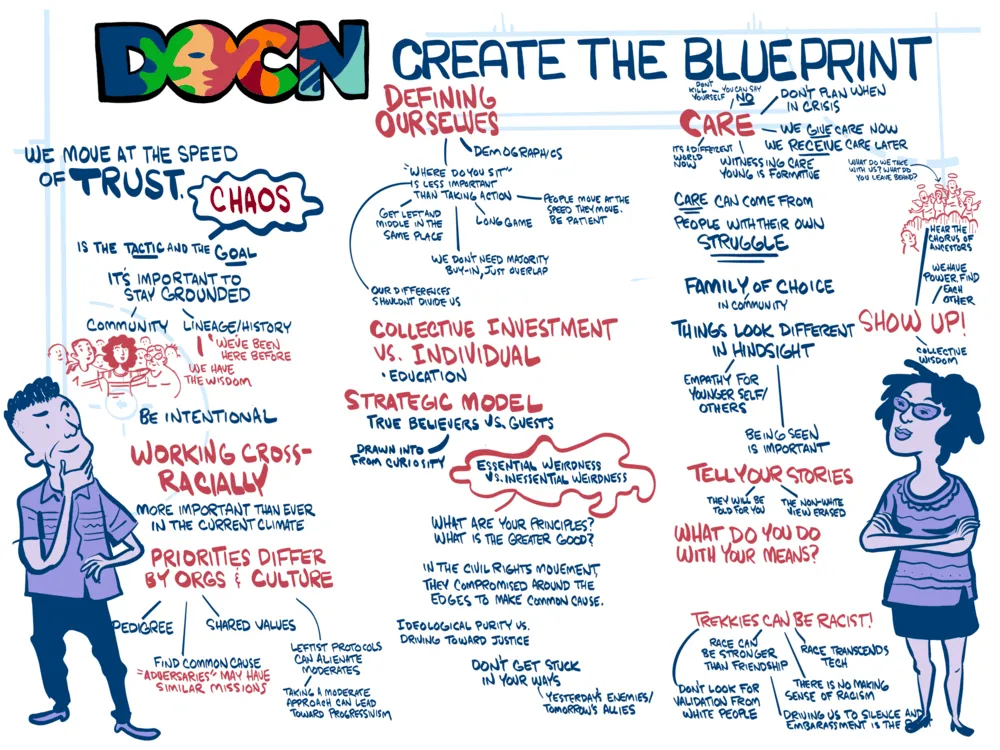 DOCN
CREATE THE BLUEPRINT
WE MOVE AT THE SPEED
OF TRUST.
CHAOS
IS THE TACTIC AND THE GOAL
IT'S IMPORTANT TO
STAY GROUNDED
COMMUNITY
LINEAGE/HISTORY
WE'VE BEEN
HERE BEFORE
WE HAVE
THE WISDOM
BE INTENTIONAL
WORKING CROSS-
RACIALLY
MORE IMPORTANT THAN EVER
IN THE CURRENT CLIMATE
PRIORITIES DIFFER
BY ORGS & CULTURE
PEDIGREE
SHARED VALUES
FIND COMMON CAUSE
"ADVERSARIES" MAY HAVE
SIMILAR MISSIONS
LEFTIST PROTOCOLS
CAN ALIENATE
MODERATES
TAKING A MODERATE
APPROACH CAN LEAD
TOWARD PROGRESSIVISM
DEFINING
OURSELVES
DEMOGRAPHICS
"WHERE DO YOU SIT"
IS LESS IMPORTANT
THAN TAKING ACTION
GET LEFT AND
MIDDLE IN THE
SAME PLACE
LONG GAME
PEOPLE MOVE AT THE
SPEED THEY MOVE.
BE PATIENT
WE DON'T NEED MAJORITY
BUY-IN, JUST OVERLAP
OUR DIFFERENCES
SHOULDNT DIVIDE US
COLLECTIVE INVESTMENT
VS. INDIVIDUAL
• EDUCATION
STRATEGIC MODEL
TRUE BELIEVERS VS. GUESTS
DRAWN INTO
FROM CURIOSITY
ESSENTIAL WEIRDNESS
VS. INESSENTIAL WEIRDNESS
WHAT ARE YOUR PRINCIPLES?
WHAT IS THE GREATER GOOD?
IN THE CIVIL RIGHTS MOVEMENT,
THEY COMPROMISED AROUND THE
EDGES TO MAKE COMMON CAUSE.
IDEOLOGICAL PURITY VS.
DRIVING TOWARD JUSTICE
DON'T GET STUCK
IN YOUR WAYS
YESTERDAY'S ENEMIES/
TOMORROW'S ALLIES
CARE
DON'T
KILL
YOURSELF
YOU CAN SAY
NO
DON'T PLAN WHEN
IN CRISIS
WE GIVE CARE NOW
WE RECEIVE CARE LATER
IT'S A DIFFERENT
WORLD
NOW
WITNESSING CARE
YOUNG IS FORMATIVE
CARE CAN COME FROM
PEOPLE WITH THEIR OWN
STRUGGLE
FAMILY OF CHOICE
IN COMMUNITY
THINGS LOOK DIFFERENT
IN HINDSIGHT
EMPATHY FOR
YOUNGER SELF/
OTHERS
BEING SEEN
IS IMPORTANT
TELL YOUR STORIES
THEY WILL BE
TOLD FOR YOU
THE NON-WHITE
VIEW ERASED
WHAT DO YOU DO
WITH YOUR MEANS?
TREKKIES CAN BE RACIST!
RACE CAN
BE STRONGER
THAN FRIENDSHIP
RACE TRANSCENDS
TECH
DON'T LOOK FOR
VALIDATION FROM
WHITE PEOPLE
THERE IS NO MAKING
SENSE OF RACISM
DRIVING US TO SILENCE AND
EMBARASSMENT IS THE
WHAT DO WE TAKE
WITH US? WHAT DO
YOU LEAVE BEHIND?
HEAR THE
CHORUS OF
ANCESTORS
WE HAVE
POWER, FIND
EACH
OTHER
SHOW UP!
COLLECTIVE
WISDOM